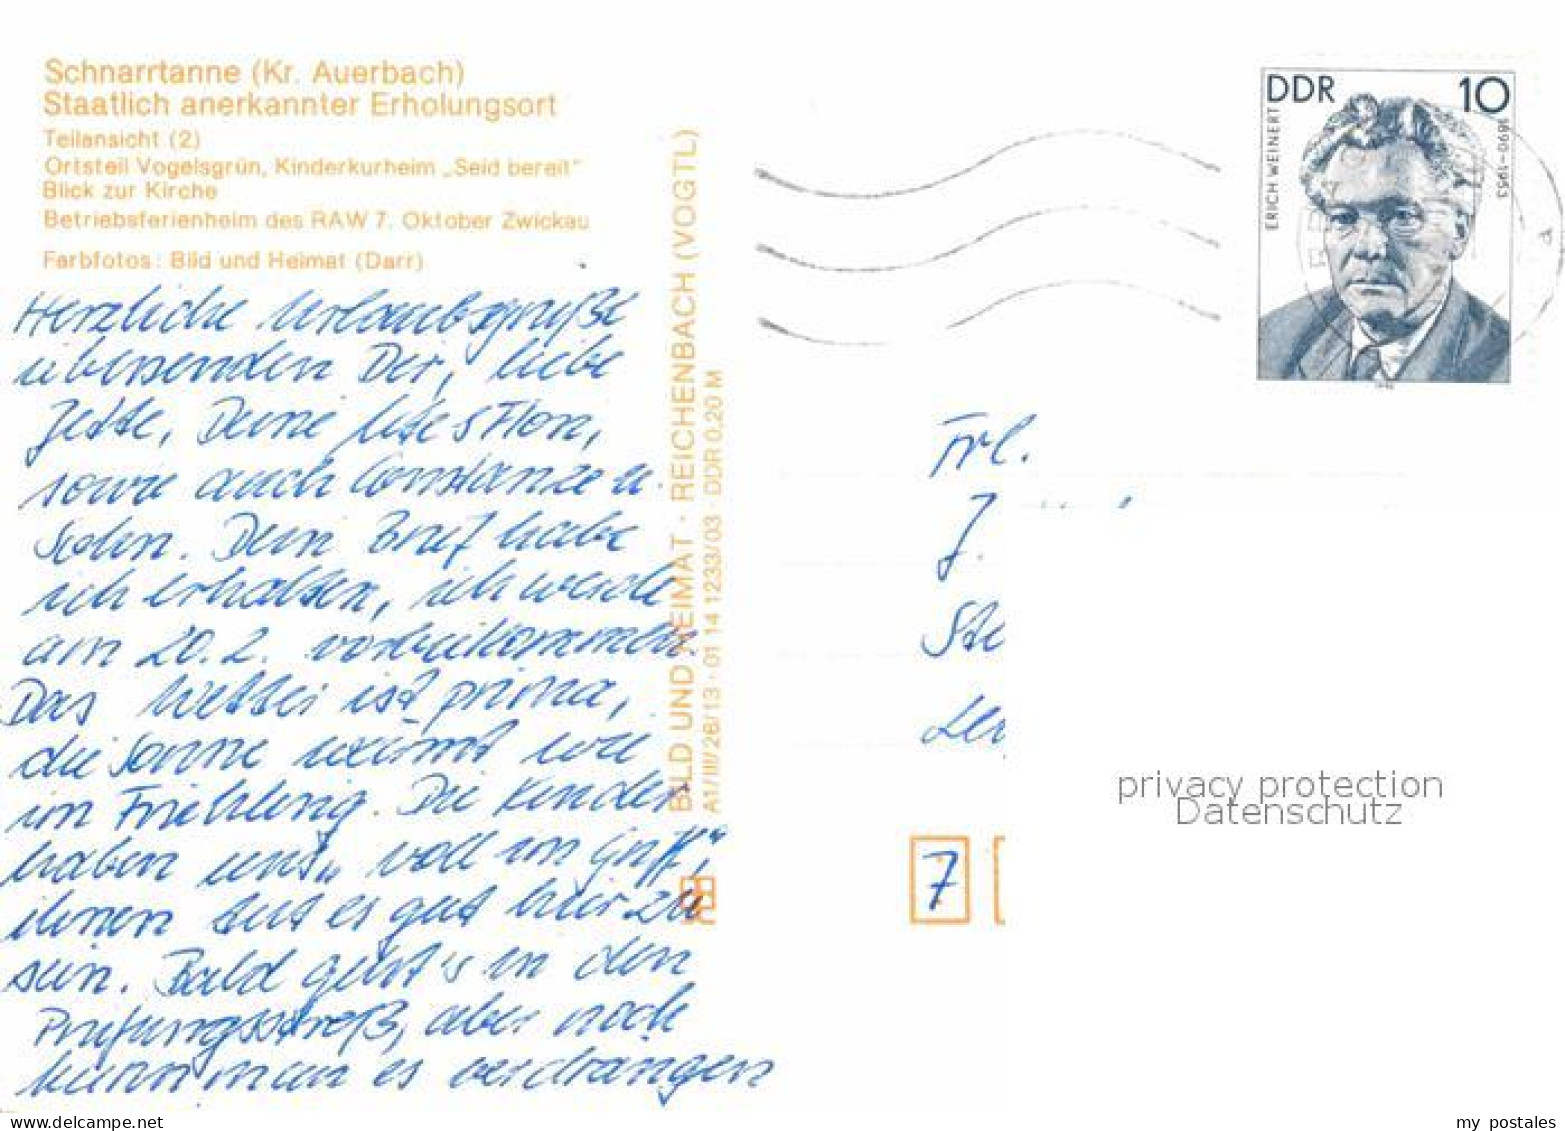 Schnarrtanne (Kr. Auerbach)
Staatlich anerkannter Erholungsort
Teilansicht (2)
Ortsteil Vogelsgrün, Kinderkurheim „Seid bereit"
Blick zur Kirche
Betriebsferienheim des RAW 7. Oktober Zwickau
Farbfotos: Bild und Heimat (Darr)
Herzliche Urlaubsgrüße
übersenden Dir, liebe
Jette, Deine
sowie auch Constanze u.
Sohn. Dein Brief habe
ich erhalten, ich werde
am 20.2. vorbeikommen.
Das Wetter ist prima,
die Sonne wärmt wie
im Frühling. Die Kinder
haben uns „voll im Griff",
ihnen tut es gut hier zu
sein. Bald geht's in den
Prüfungsstreß, aber noch
kann man es verdrängen
BILD UND HEIMAT · REICHENBACH (VOGTL)
A1/III/26/13 · 01 14 1233/03 · DDR 0,20 M
DDR 10
ERICH WEINERT
1890-1953
Frl.
J.
7
privacy protection
Datenschutz
my postales